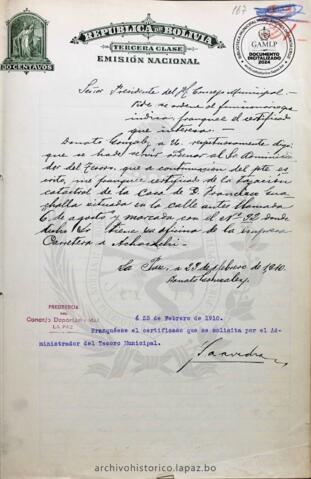 167
REPUBLICA DE BOLIVIA
TERCERA CLASE
EMISIÓN NACIONAL
50 CENTAVOS
GAMLP
DOCUMENTO
DIGITALIZADO
2024
Señor Presidente del H. Consejo Municipal.
Pide se ordene al funcionario que
indica, franquee el certificado
que interesa.
Donato Gonzalez a U. respetuosamente digo:
que se ha de servir ordenar al Sr. Administra-
dor del Tesoro, que a continuación del pte. es-
crito, me franquee certificado de la
catastral de la Casa de D. Francisco
situada en la calle antes llamada
6 de agosto y marcada con el Nº 92 donde
dicho Sr. tiene su oficina de la empresa
Carretera a Achacachi.
La Paz, a 23 de febrero de 1910.
Donato Gonzalez
PRESIDENCIA
DEL
LA PAZ
á 25 de Febrero de 1910.
Franquéese el certificado que se solicita por el Ad-
ministrador del Tesoro Municipal.
Saavedra
archivohistorico.lapaz.bo